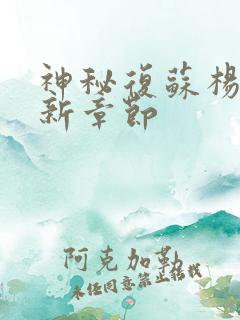 神秘復蘇楊
新章節
阿克加勒
未经同意禁止转载